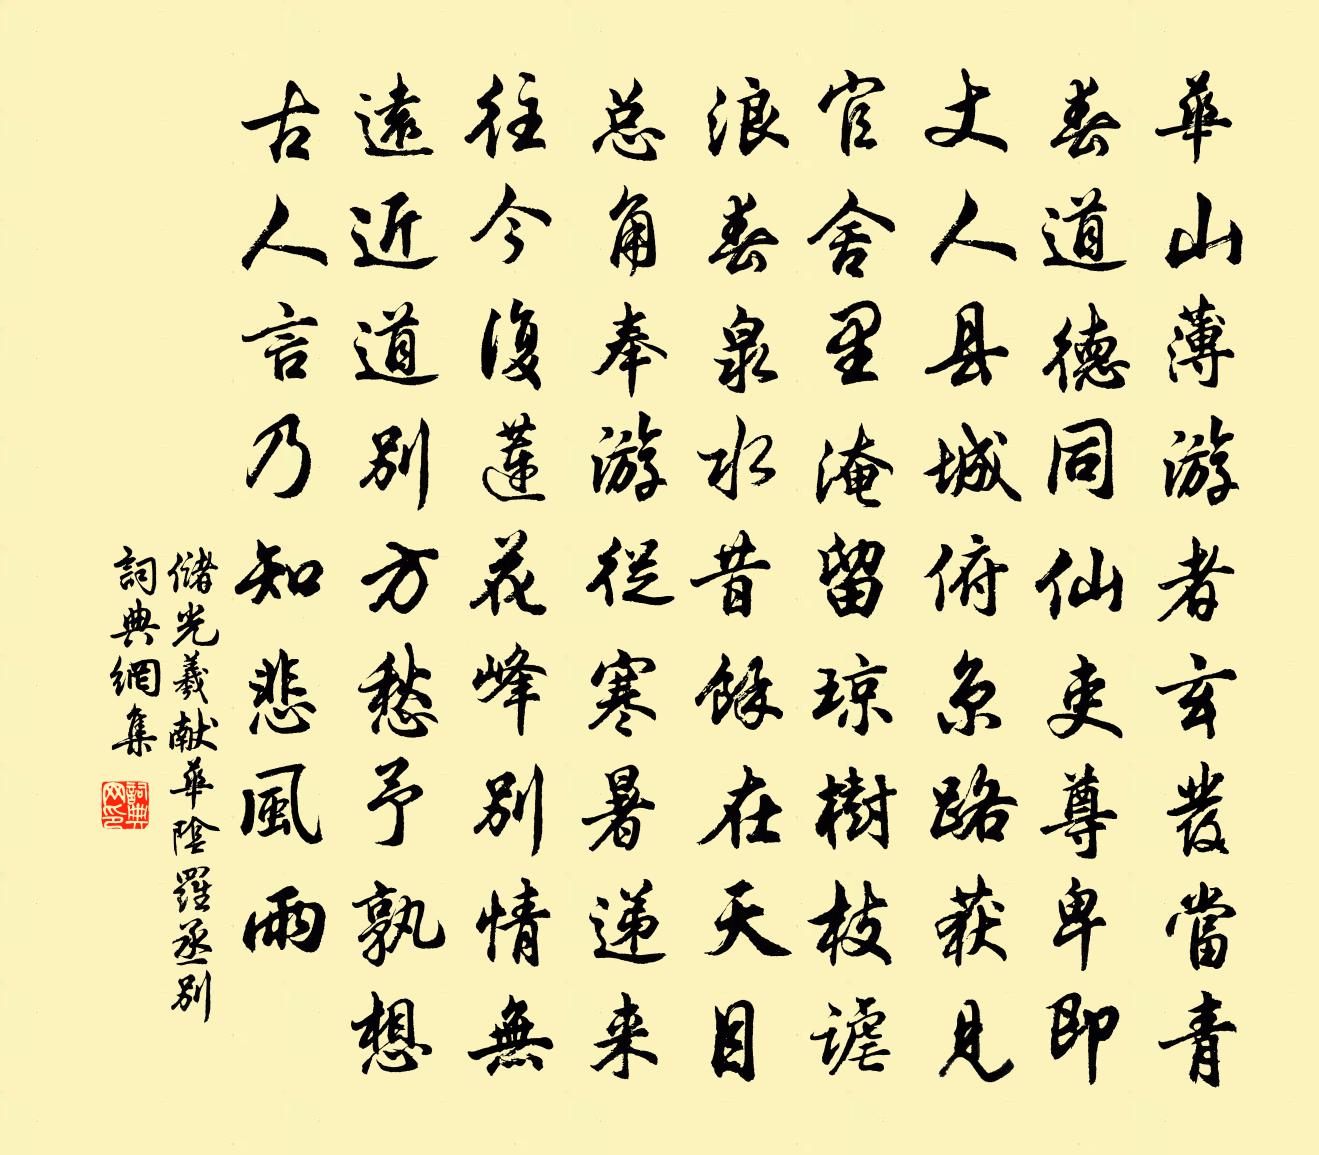 華山薄游者玄發當青
春道德同仙吏尊卑即
丈人县城俯京路获見
官舍里淹留琼樹枝謔
浪春泉水昔餘在天目
总角奉游從寒暑递来
往今復蓮花峰別情無
遠近道別方愁予孰想
古人言乃知悲風雨
儲光羲献華陰羅丞別
詞典網集
詞典
网印